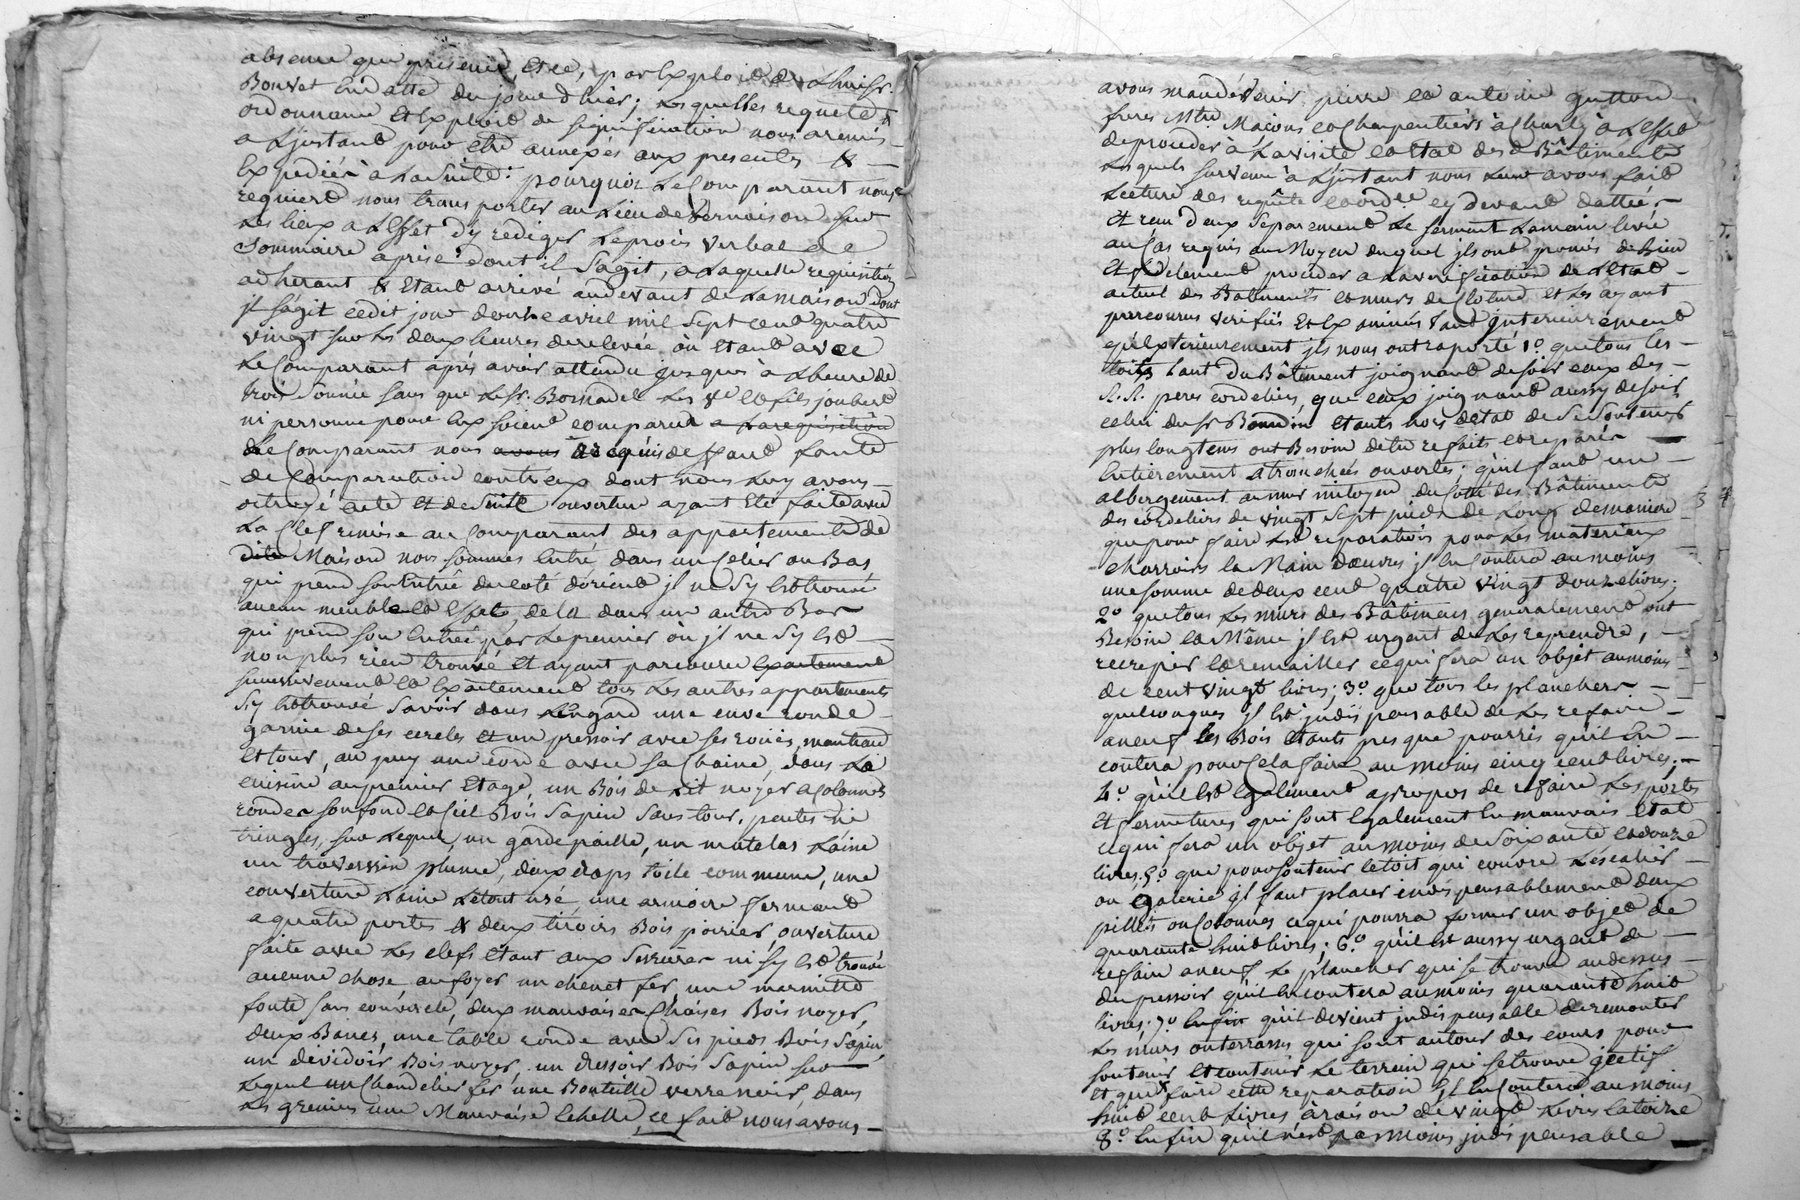 absence que présence, et ce, par Exploit de Lhuisr.
Bouvet En datte du jour d'hier; Lesquelles requete
ordonnance Et Exploit de signification nous a remis
a L'jnstant pour etre annexés aux presentes &
Expediés à La suite: pourquoi Le Comparant nous
requiert nous transporter au Lieu de Vernaison sur
Les lieux a L'effet d'y rediger Le procès verbal de
Sommaire aprise dont il s'agit, a Laquelle requisition
adherant & Etant arrivé au devant de La maison dont
jl s'agit cedit jour douze avril mil sept cent quatre
vingt sur Les deux heures de relevée où Etant avec
Le Comparant après avoir attendu jusques à L'heure de
trois sonnée sans que Le Sr. Bornadel Les Ve et fils joubert
ni personne pour Eux soient comparus a La requisition
Le Comparant nous avons requis deffaut faute
de Comparution contr'eux dont nous Luy avons
octroyé acte Et de suite ouverture ayant Eté faite avec
La Clef remise au Comparant des appartements de
dite Maison nous sommes Entré dans un Celier au Bas
qui prend son Entrée du coté d'orient jl ne s'y Est trouvé
aucun meuble et Effets, de la dans un autre Bas
qui prend son Entrée par Le premier où jl ne s'y Est
non plus rien trouvé Et ayant parcouru Exactement
successivement et Exactement tous Les autres appartements
s'y Est trouvé savoir dans L'engard une cuve ronde
garnie de ses cercles Et un pressoir avec ses roües, manteau
Et tour, au puy une corde avec sa Chaine, dans La
cuisine au premier Etage, un Bois de Lit noyer a Colonnes
rondes son fond et Ciel Bois Sapin sans tour, pentes ni
tringles, sur Lequel, un garde paille, un matelas Laine
un traversin plume, deux draps toile commune, une
couverture Laine Le tout usé, une armoire fermant
a quatre portes & deux tiroirs Bois poirier, ouverture
faite avec Les clefs Etant aux Serrures ni s'y Est trouvé
aucune chose au foyer un chenet fer, une marmitte
fonte sans couvercle, deux mauvaises Chaises Bois noyer,
deux Bancs, une table ronde avec Ses pieds Bois Sapin,
un dévidoir Bois noyer, un dressoir Bois Sapin sur
Lequel un Chandelier fer, une Bouteille verre noir, dans
Les greniers une Mauvaise Echelle, ce fait nous avons
avons mandé venir pierre et antoine gutton
freres Mtres Maçons et Charpentiers à Charly à L'effet
de proceder à La visite et Etat des d. Bâtiments
Lesquels survenu à L'jnstant nous Leur avons fait
Lecture des requête et ordce cy devant dattées
Et reçu d'eux separement Le serment La main Levée
au Cas requis au Moyen duquel jls ont promis de Bien
Et fidelement proceder a La verification de L'Etat
actuel des Batiments et murs de Cloture Et Les ayant
parcourus verifiés Et Examinés tant jnterieurement
qu'Exterieurement jls nous ont raporté 1o. que tous les
toits tant du Bâtiment joignant de soir ceux des
R. R. peres cordeliers, que ceux joignant aussy de soir
celui du Sr Etants hors d'etat de se soutenir
plus longtems ont Besoin d'etre refaits et reparés
Entierement a tranchées ouvertes; qu'il faut un
albergement au mur mitoyen du coté des Bâtiments
des cordeliers de vingt sept pieds de Long de maniere
que pour faire Les reparations pour Les materiaux
charrois La Main d'œuvres jl En coutera au moins
une somme de deux cent quatre vingt douze livres;
2o. que tous Les murs des Bâtimens generalement ont
Besoin et Même jl Est urgent de Les reprendre,
recrepir et remailler ce qui fera un objet au moins
de cent vingt livres; 3o. que tous les planchers
quelconques jl Est jndispensable de Les refaire
a neuf les Bois Etants presque pourris qu'il En
coutera pour Cela faire au moins cinq cent livres;
4o. qu'il Est Egalement apropos de refaire Les portes
Et fermetures qui sont Egalement En mauvais Etat
ce qui fera un objet au moins de soixante et douze
livres; 5o. que pour soutenir Le toit qui couvre L'éscalier
ou galerie jl faut placer indispensablement deux
pilliers ou Colonnes ce qui pourra former un objet de
quarante huit livres; 6o. qu'il Est aussy urgent de
refaire a neuf Le plancher qui se trouve au dessus
du pressoir qu'il En coutera au moins quarante huit
livres; 7o. Enfin qu'il devient jndispensable de remonter
Les murs en terrasses qui sont autour des cours pour
soutenir Et contenir Le terrein qui se trouve jectif
Et que faire cette reparation jl En Coutera au moins
huit cent Livres à raison de vingt Livres La toise
8o. Enfin qu'il n'est pas moins jndispensable